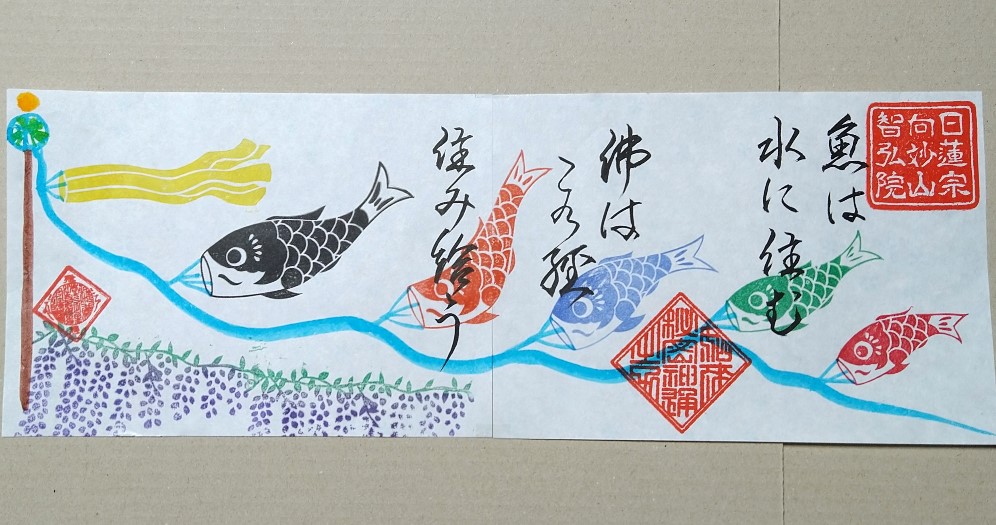 日蓮宗
向妙山
智弘院
魚は
水に住む
佛は
この経
住み給う